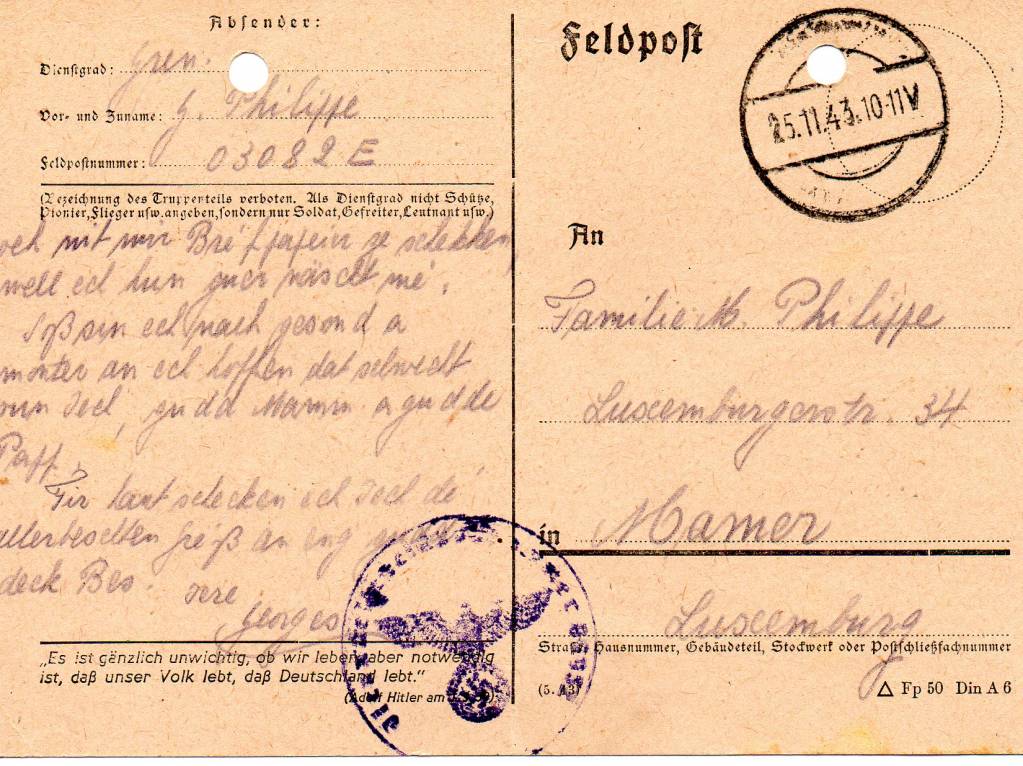 Absender:
Dienstgrad: Gren.
Vor- und Zuname: G. Philippe
Feldpostnummer: 03082 E
(Bezeichnung des Truppenteils verboten. Als Dienstgrad nicht Schütze,
Pionier, Flieger usw. angeben, sondern nur Soldat, Gefreiter, Leutnant usw.)
och nit mir ze schekken
well ech hun guer näischt mé.
Soß sin ech nach gesond a
monter an ech hoffen dat selwecht
vun Iech, gudd Mamm a gudde
Papp.
Fir haut schecken ech Iech dé
allerbeschten Greiß an eng
deck Bes.
Georges
„Es ist gänzlich unwichtig, ob wir leben, aber notwendig
ist, daß unser Volk lebt, daß Deutschland lebt.“
(Adolf Hitler am
Feldpost
25.11.43.10-11V
An
Familie M. Philippe
Luxemburgerstr. 34
in Mamer
Luxemburg
Straße, Hausnummer, Gebäudeteil, Stockwerk oder Postschließfachnummer
(5. 43)
△ Fp 50 Din A 6